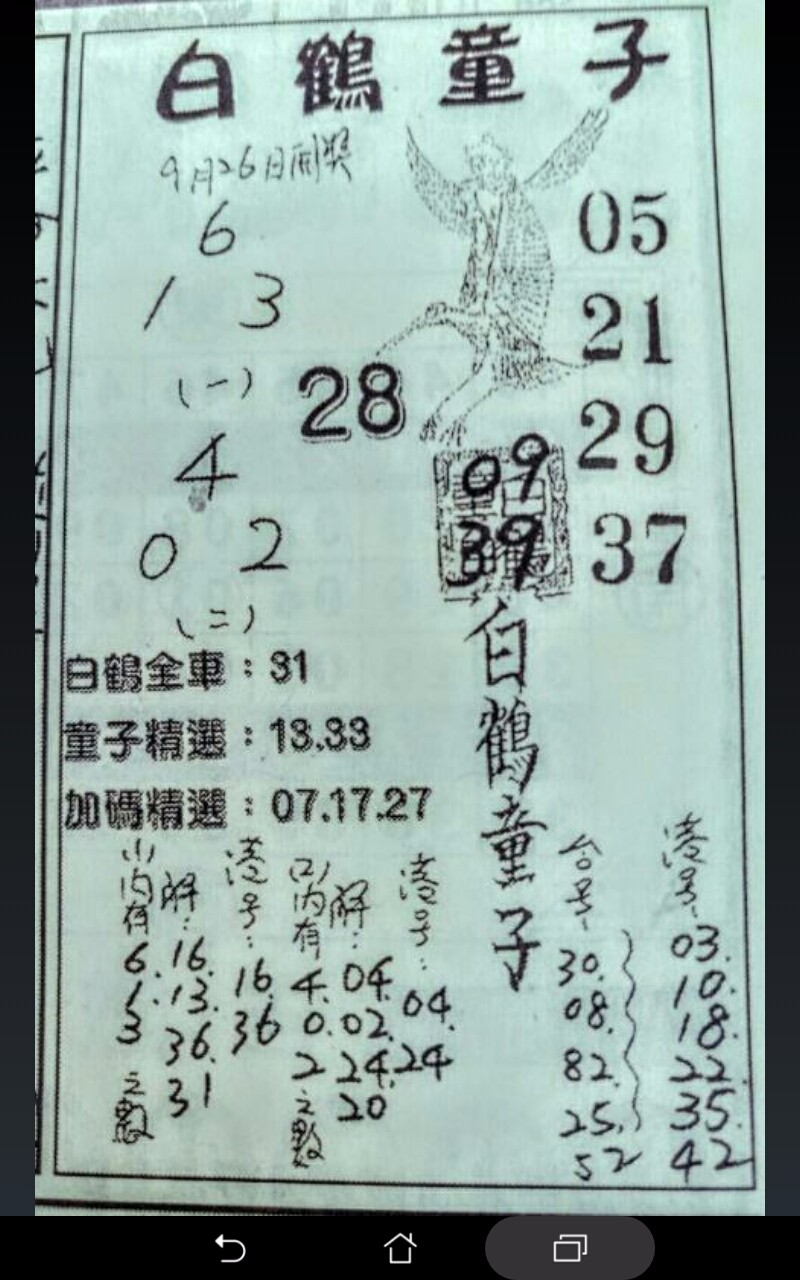 白鶴童子
9月26日開獎
6
1 3
(一)
4
0 2
(二)
28
05
21
29
37
09
39
白鶴童子
白鶴全車：31
童子精選：13.33
加碼精選：07.17.27
(一)內有 6.1.3 之數
解：16.13.36.31
港号：16.36
(二)內有 4.0.2 之數
解：04.02.24.20
港号：04.24
台号：30.08.82.25.52
港号：03.10.18.22.35.42